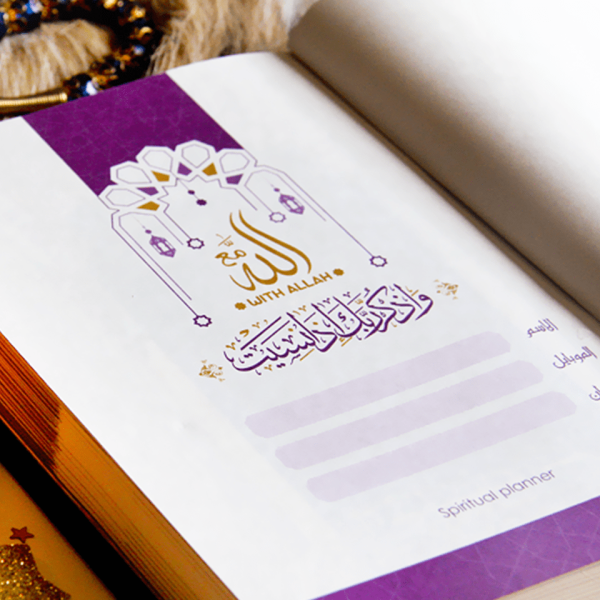 مع الله
WITH ALLAH
واذكر ربك إذا نسيت
الاسم
الموبايل
Spiritual planner